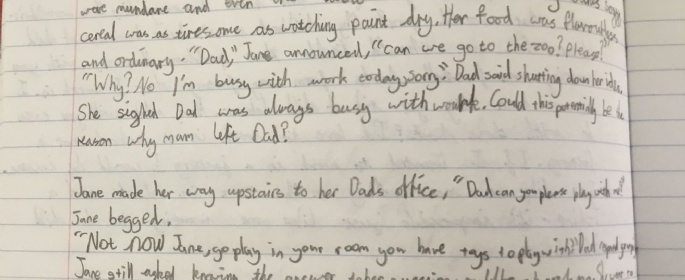 were mundane and even
cereal was as tiresome as watching paint dry. Her food was flavourless
and ordinary. "Dad," Jane announced, "can we go to the zoo? Please?"
"Why? No I'm busy with work today, sorry." Dad said shutting down her idea.
She sighed Dad was always busy with work. Could this potentially be the
reason why mam left Dad?
Jane made her way upstairs to her Dads office, "Dad can you please play with me?"
Jane begged.
"Not now Jane, go play in your room you have toys to play with!" Dad
Jane still asked knowing the answer